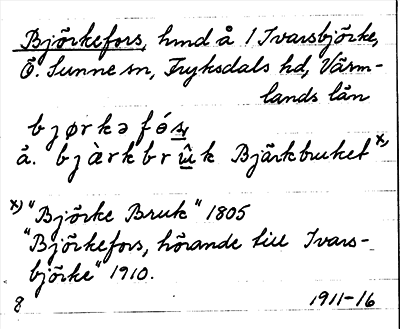 Björkefors, hmd å 1 Ivarsbjörke,
Ö. Sunne sn, Fryksdals hd, Värm-
lands län
bjørkəfós,
å. bjàrkbrûk Bjärkbruket x)
x) "Björke Bruk" 1805
"Björkefors, hörande till Ivars-
björke" 1910.
8 1911-16